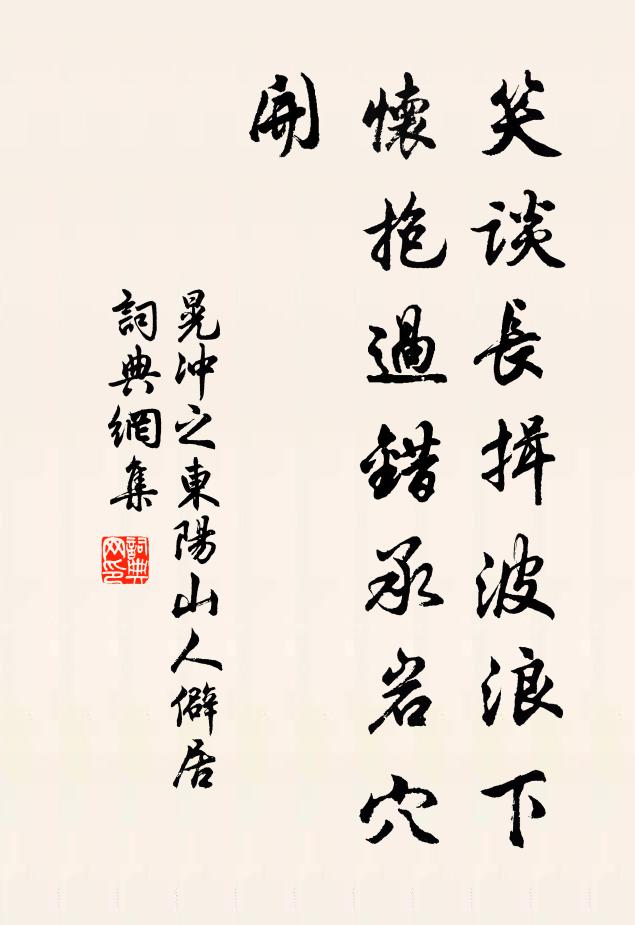 笑談長揖波浪下
懷抱過錯承岩穴
開
晁沖之東陽山人僻居
詞典網集
詞典
网印